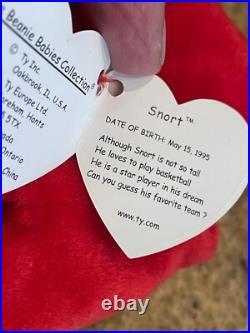 Beanie Babies Collection®
© Ty Inc.
Oakbrook, IL. U.S.A.
Ty Europe Ltd.
Hants
5TX
Ontario
China
Snort™
DATE OF BIRTH: May 15, 1995
Although Snort is not so tall
He loves to play basketball
He is a star player in his dream
Can you guess his favorite team ?
www.ty.com